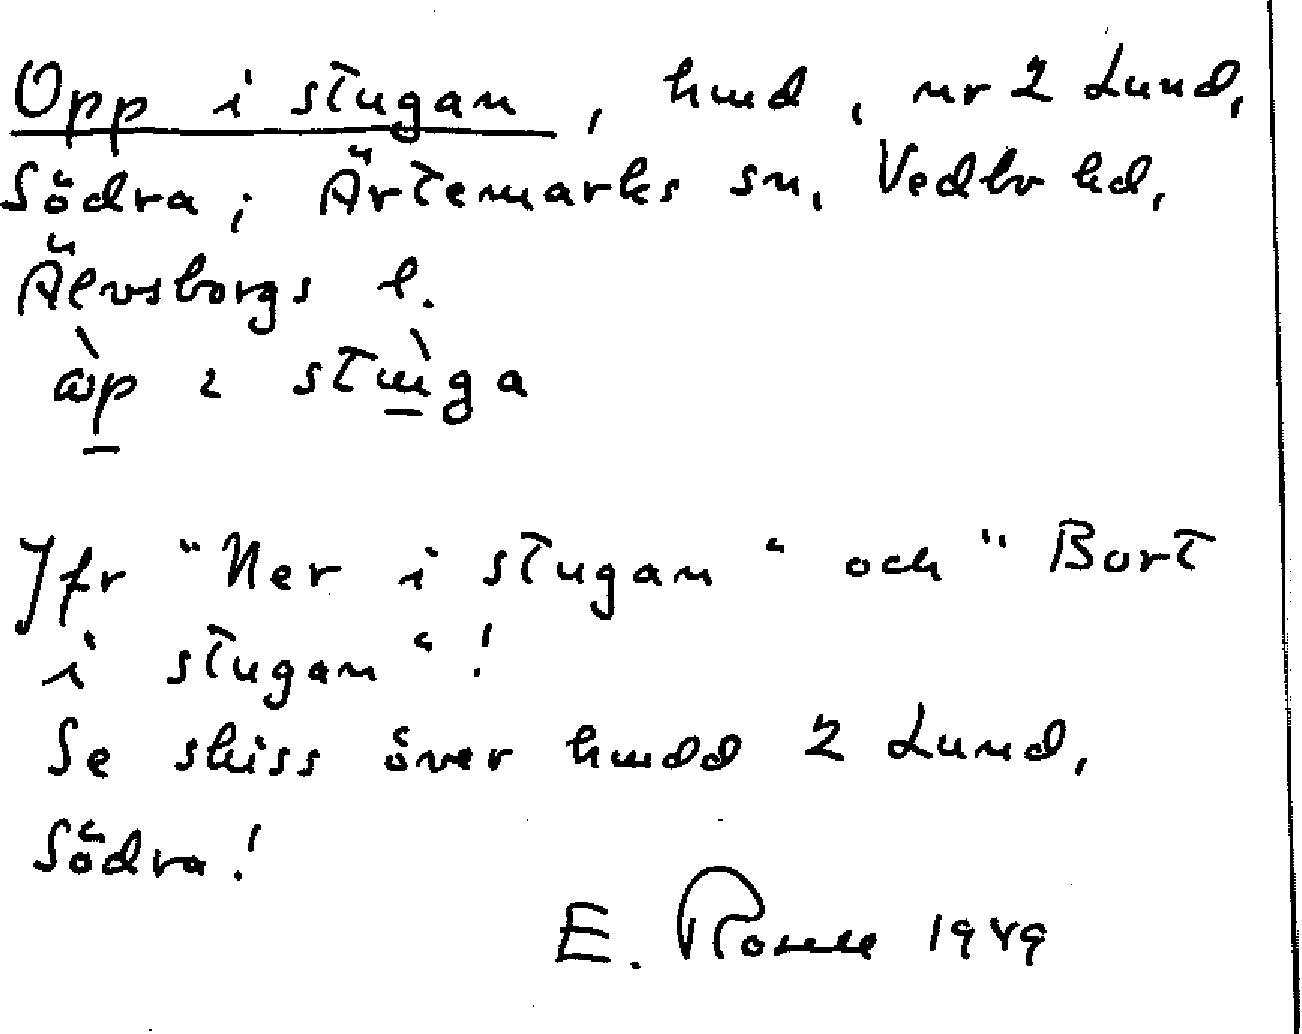 Opp i stugan, hmd, nr 2 Lund,
Södra, Ärtemarks sn, Vedbo hd,
Älvsborgs l.
i
Jfr "Ner i stugan" och "Bort
i stugan"!
Se skiss över hmdd 2 Lund,
Södra!
E. 1949